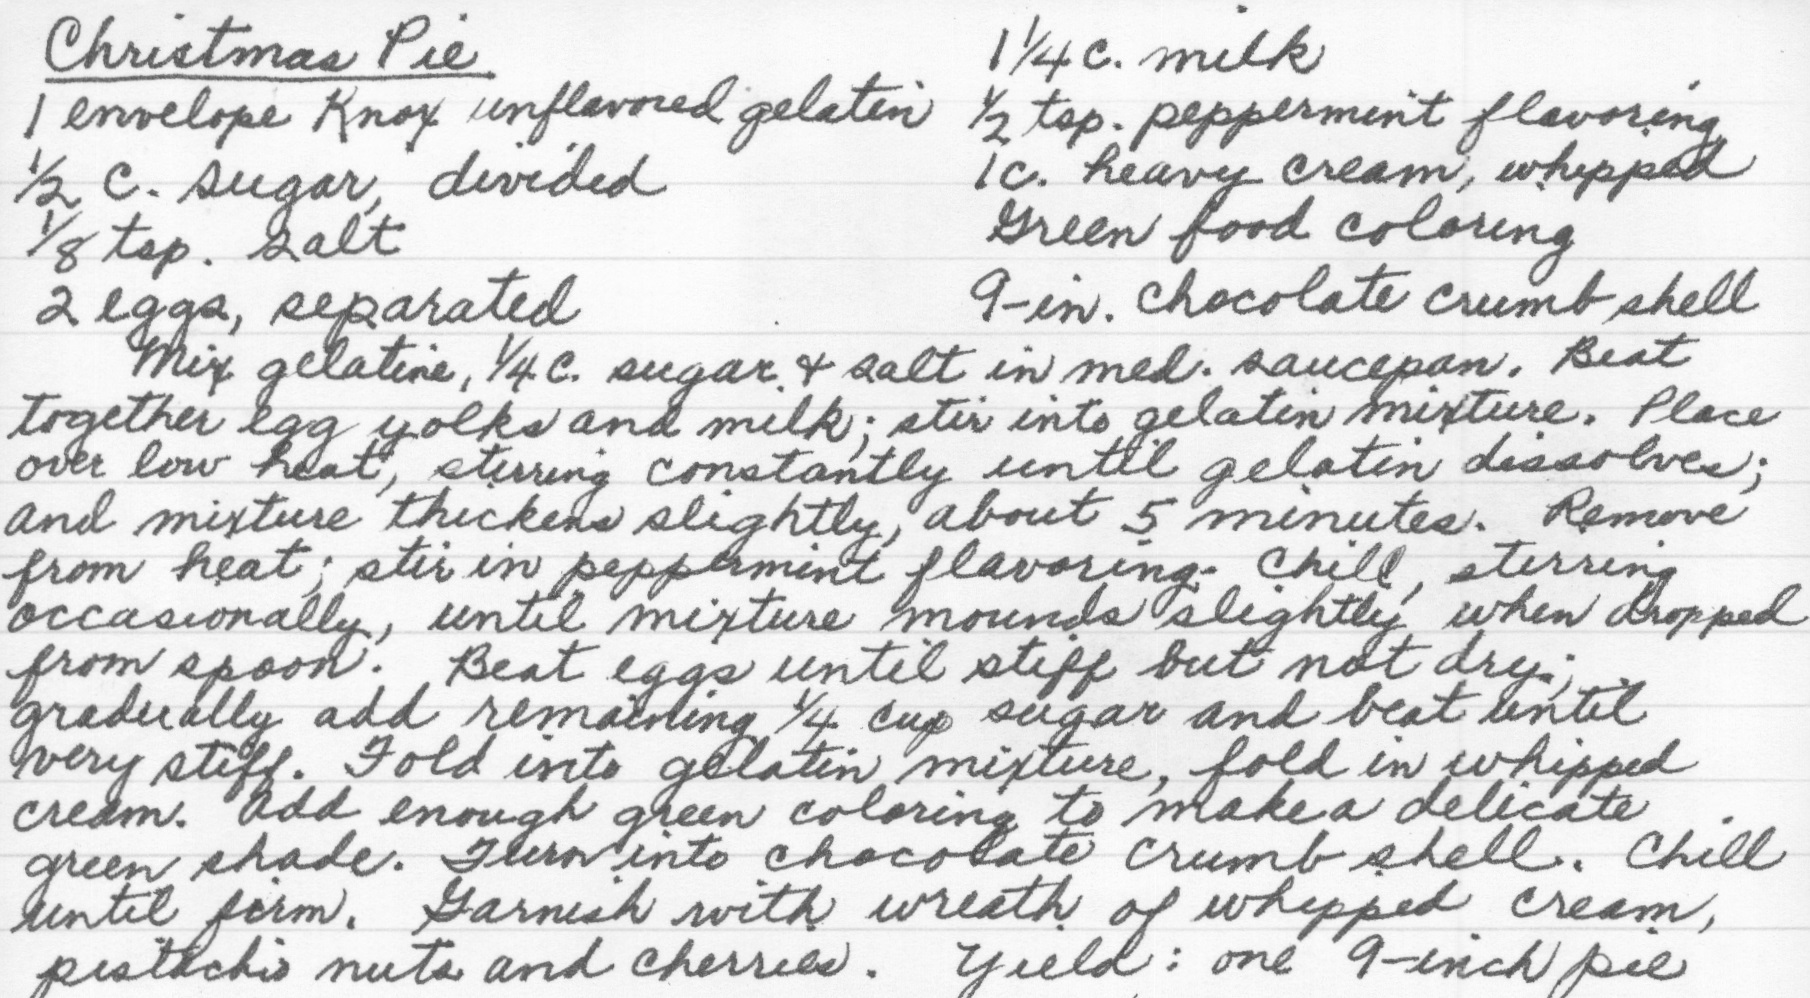 Christmas Pie
1 envelope Knox unflavored gelatin
1/2 c. sugar, divided
1/8 tsp. salt
2 eggs, separated
1 1/4 c. milk
1/2 tsp. peppermint flavoring
1 c. heavy cream, whipped
Green food coloring
9-in. chocolate crumb shell
Mix gelatine, 1/4 c. sugar & salt in med. saucepan. Beat
together egg yolks and milk; stir into gelatin mixture. Place
over low heat, stirring constantly until gelatin dissolves;
and mixture thickens slightly, about 5 minutes. Remove
from heat; stir in peppermint flavoring. Chill, stirring
occasionally, until mixture mounds slightly when dropped
from spoon. Beat eggs until stiff but not dry;
gradually add remaining 1/4 cup sugar and beat until
very stiff. Fold into gelatin mixture, fold in whipped
cream. Add enough green coloring to make a delicate
green shade. Turn into chocolate crumb shell. Chill
until firm. Garnish with wreath of whipped cream,
pistachio nuts and cherries. Yield: one 9-inch pie